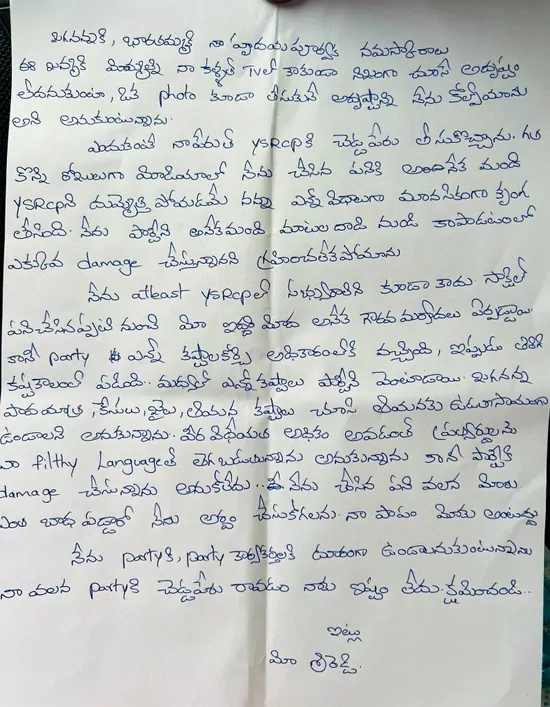 జగనన్నకి, భారతమ్మకి నా హృదయపూర్వక నమస్కారాలు
ఈ జన్మకి మిమ్మల్ని నా కళ్ళతో TVలో కాకుండా నిజంగా చూసే అదృష్టం
లేదనుకుంటా, ఒక photo కూడా తీసుకునే అదృష్టాన్ని నేను కోల్పోయాను
అని అనుకుంటున్నాను.
ఎందుకంటే నా పేరుతో YSRCPకి చెడ్డపేరు తీసుకొచ్చాను. గత
కొన్ని రోజులుగా మీడియాలో నేను చేసిన పనికి అనేక మంది
YSRCPని దుమ్మెత్తి పోయడమే నన్ను ఎన్నో విధాలుగా మానసికంగా కృంగ
తీసింది. నేను పార్టీని అనేకమంది మాటల దాడి నుండి కాపాడటంలో
ఎక్కువ damage చేస్తున్నానని గ్రహించలేకపోయాను
నేను atleast YSRCPలో సభ్యురాలిని కూడా కాదు సాక్షిలో
పనిచేసినప్పటి నుంచి మీ ఇద్దరి మీద అనేక గౌరవ మర్యాదలు ఏర్పడ్డాయి.
కానీ party ఎన్నో కష్టాలకోర్చి అధికారంలోకి వచ్చింది, ఇప్పుడు తిరిగి
కష్టకాలంలో పడింది.. మధ్యలో ఎన్నో కష్టాలు పార్టీని వెంటాడాయి. జగనన్న
పాదయాత్ర, కేసులు, జైలు, ఆయన కష్టాలు చూసి ఆయనకు ఉడుతాసాయంగా
ఉండాలని అనుకున్నాను. వీర విధేయత అధికం అవడంతో ప్రత్యర్థులను
నా filthy Languageతో తెగబడుతున్నాను అనుకున్నాను కానీ పార్టీకి
damage చేస్తున్నాను అనుకోలేదు.. నేను చేసిన పని వలన మీరు
ఎంత బాధ పడ్డారో నేను అర్థం చేసుకోగలను. నా పాపం మీకు అంటద్దు
నేను partyకి, party కార్యకర్తలకి దూరంగా ఉండాలనుకుంటున్నాను
నా వలన partyకి చెడ్డపేరు రావడం నాకు ఇష్టం లేదు. క్షమించండి..
ఇట్లు
మీ శ్రీరెడ్డి.